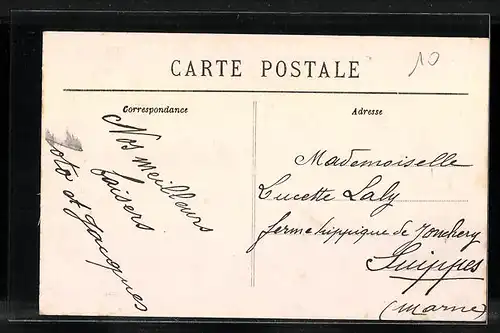 10
CARTE POSTALE
Correspondance
Adresse
Nos meilleurs
baisers
Toto et Jacques
Mademoiselle
Lucette Laly
ferme hippique de Jonchery
Suippes
(Marne)